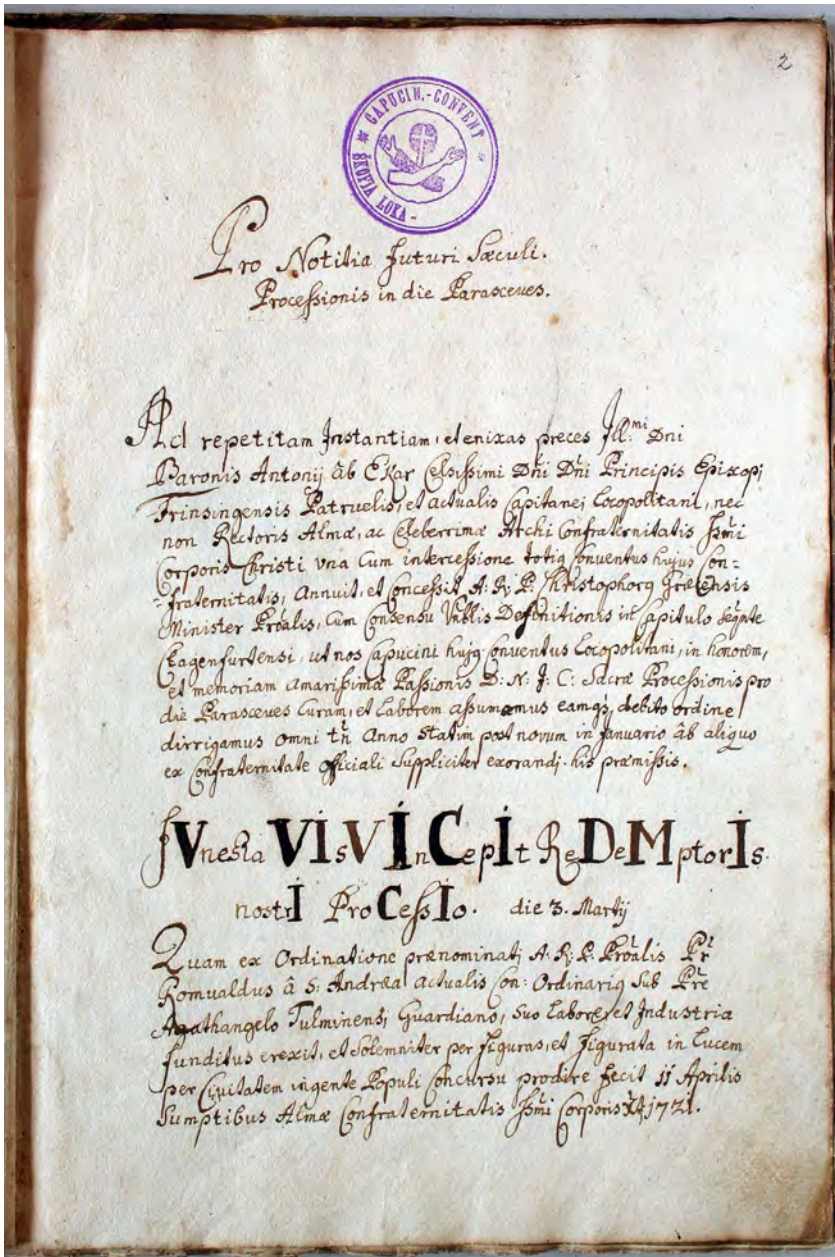 2
* CAPUCIN.-CONVENT *
ŠKOFJA LOKA -
Pro Notitia futuri Sæculi.
Processionis in die Parasceves.
Ad repetitam Instantiam, et enixas preces Ill:mi Dni
Baronis Antonij ab Ekar Celsissimi Dni Dni Principis Episcopi
Frinsingensis Patruelis, et actualis Capitanei Locopolitani, nec
non Rectoris Almæ, ac Celeberrimæ Archi Confraternitatis Ssmi
Corporis Christi vna Cum intercessione totiq Conventus hujus Con=
=fraternitatis, Annuit, et Concessit A: R: P: Christophorq Græcensis
Minister Prõalis, Cum Consensu Vnblis Definitionis in Capitulo seqnte
Clagenfurtensi, ut nos Capucini hujq Conventus Locopolitani, in honorem,
et memoriam amarissimæ Passionis D: N: J: C: Sacræ Processionis pro
die Parasceves Curam, et Laborem assumamus eamq, debito ordine
dirrigamus omni tñ Anno statim post novum in Januario âb aliquo
ex Confraternitate officiali suppliciter exorandj. his præmissis.
fVnesta VIsVInCepIt ReDeMptorIs
nostrI ProCessIo. die 3. Martij
Quam ex Ordinatione prænominatj A: R: P: Prõalis Pr
Romualdus â S: Andrea actualis Con: Ordinariq Sub Pre
Agathangelo Tulminensi Guardiano, suo Labore, et Industria
funditus erexit, et Solemniter per figuras, et figurata in Lucem
per Civitatem ingente Populi Concursu prodire fecit 11 Aprilis
Sumptibus Almæ Confraternitatis Ssmi Corporis Xti 1721.